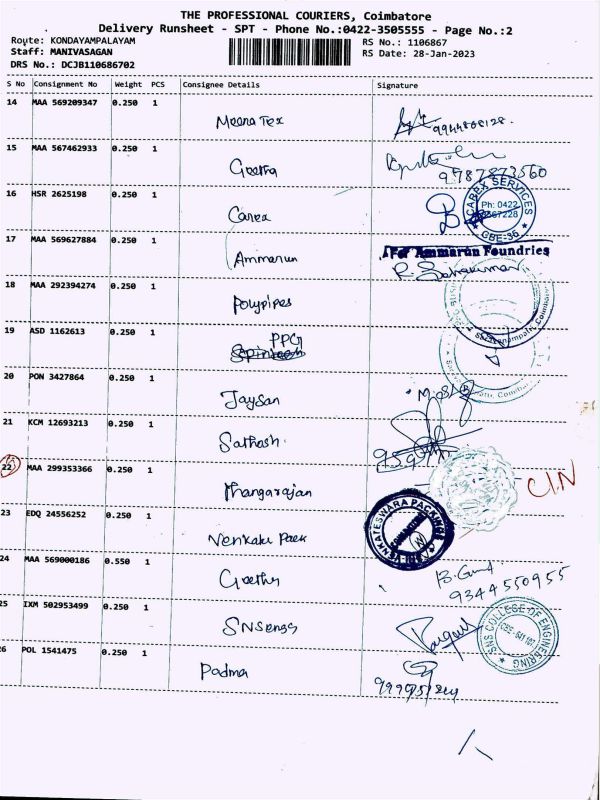 THE PROFESSIONAL COURIERS, Coimbatore
Delivery Runsheet - SPT - Phone No.:0422-3505555 - Page No.:2
Route: KONDAYAMPALAYAM
RS No.: 1106867
Staff: MANIVASAGAN
RS Date: 28-Jan-2023
DRS No.: DCJB110686702
S No Consignment No Weight PCS Consignee Details Signature
14 MAA 569209347 0.250 1
Meena Tex
9944808128.
15 MAA 567462933 0.250 1
Geetha
9787873560
16 HSR 2625198 0.250 1
Carex
CAREX SERVICES
Ph: 0422
CBE-35
17 MAA 569627884 0.250 1
Ammarun
For Ammarun Foundries
18 MAA 292394274 0.250 1
Polypipes
19 ASD 1162613 0.250 1
PPG
20 PON 3427864 0.250 1
Jaysan
21 KCM 12693213 0.250 1
Sathish.
22 MAA 299353366 0.250 1
Thangarajan
C/N
23 EDQ 24556252 0.250 1
Venkate Pack
VENKATESWARA PACKINGS
24 MAA 569000186 0.550 1
Geetha
9344550955
25 IXM 502953499 0.250 1
SNS engg
SNS COLLEGE OF ENGINEERING
26 POL 1541475 0.250 1
Padma